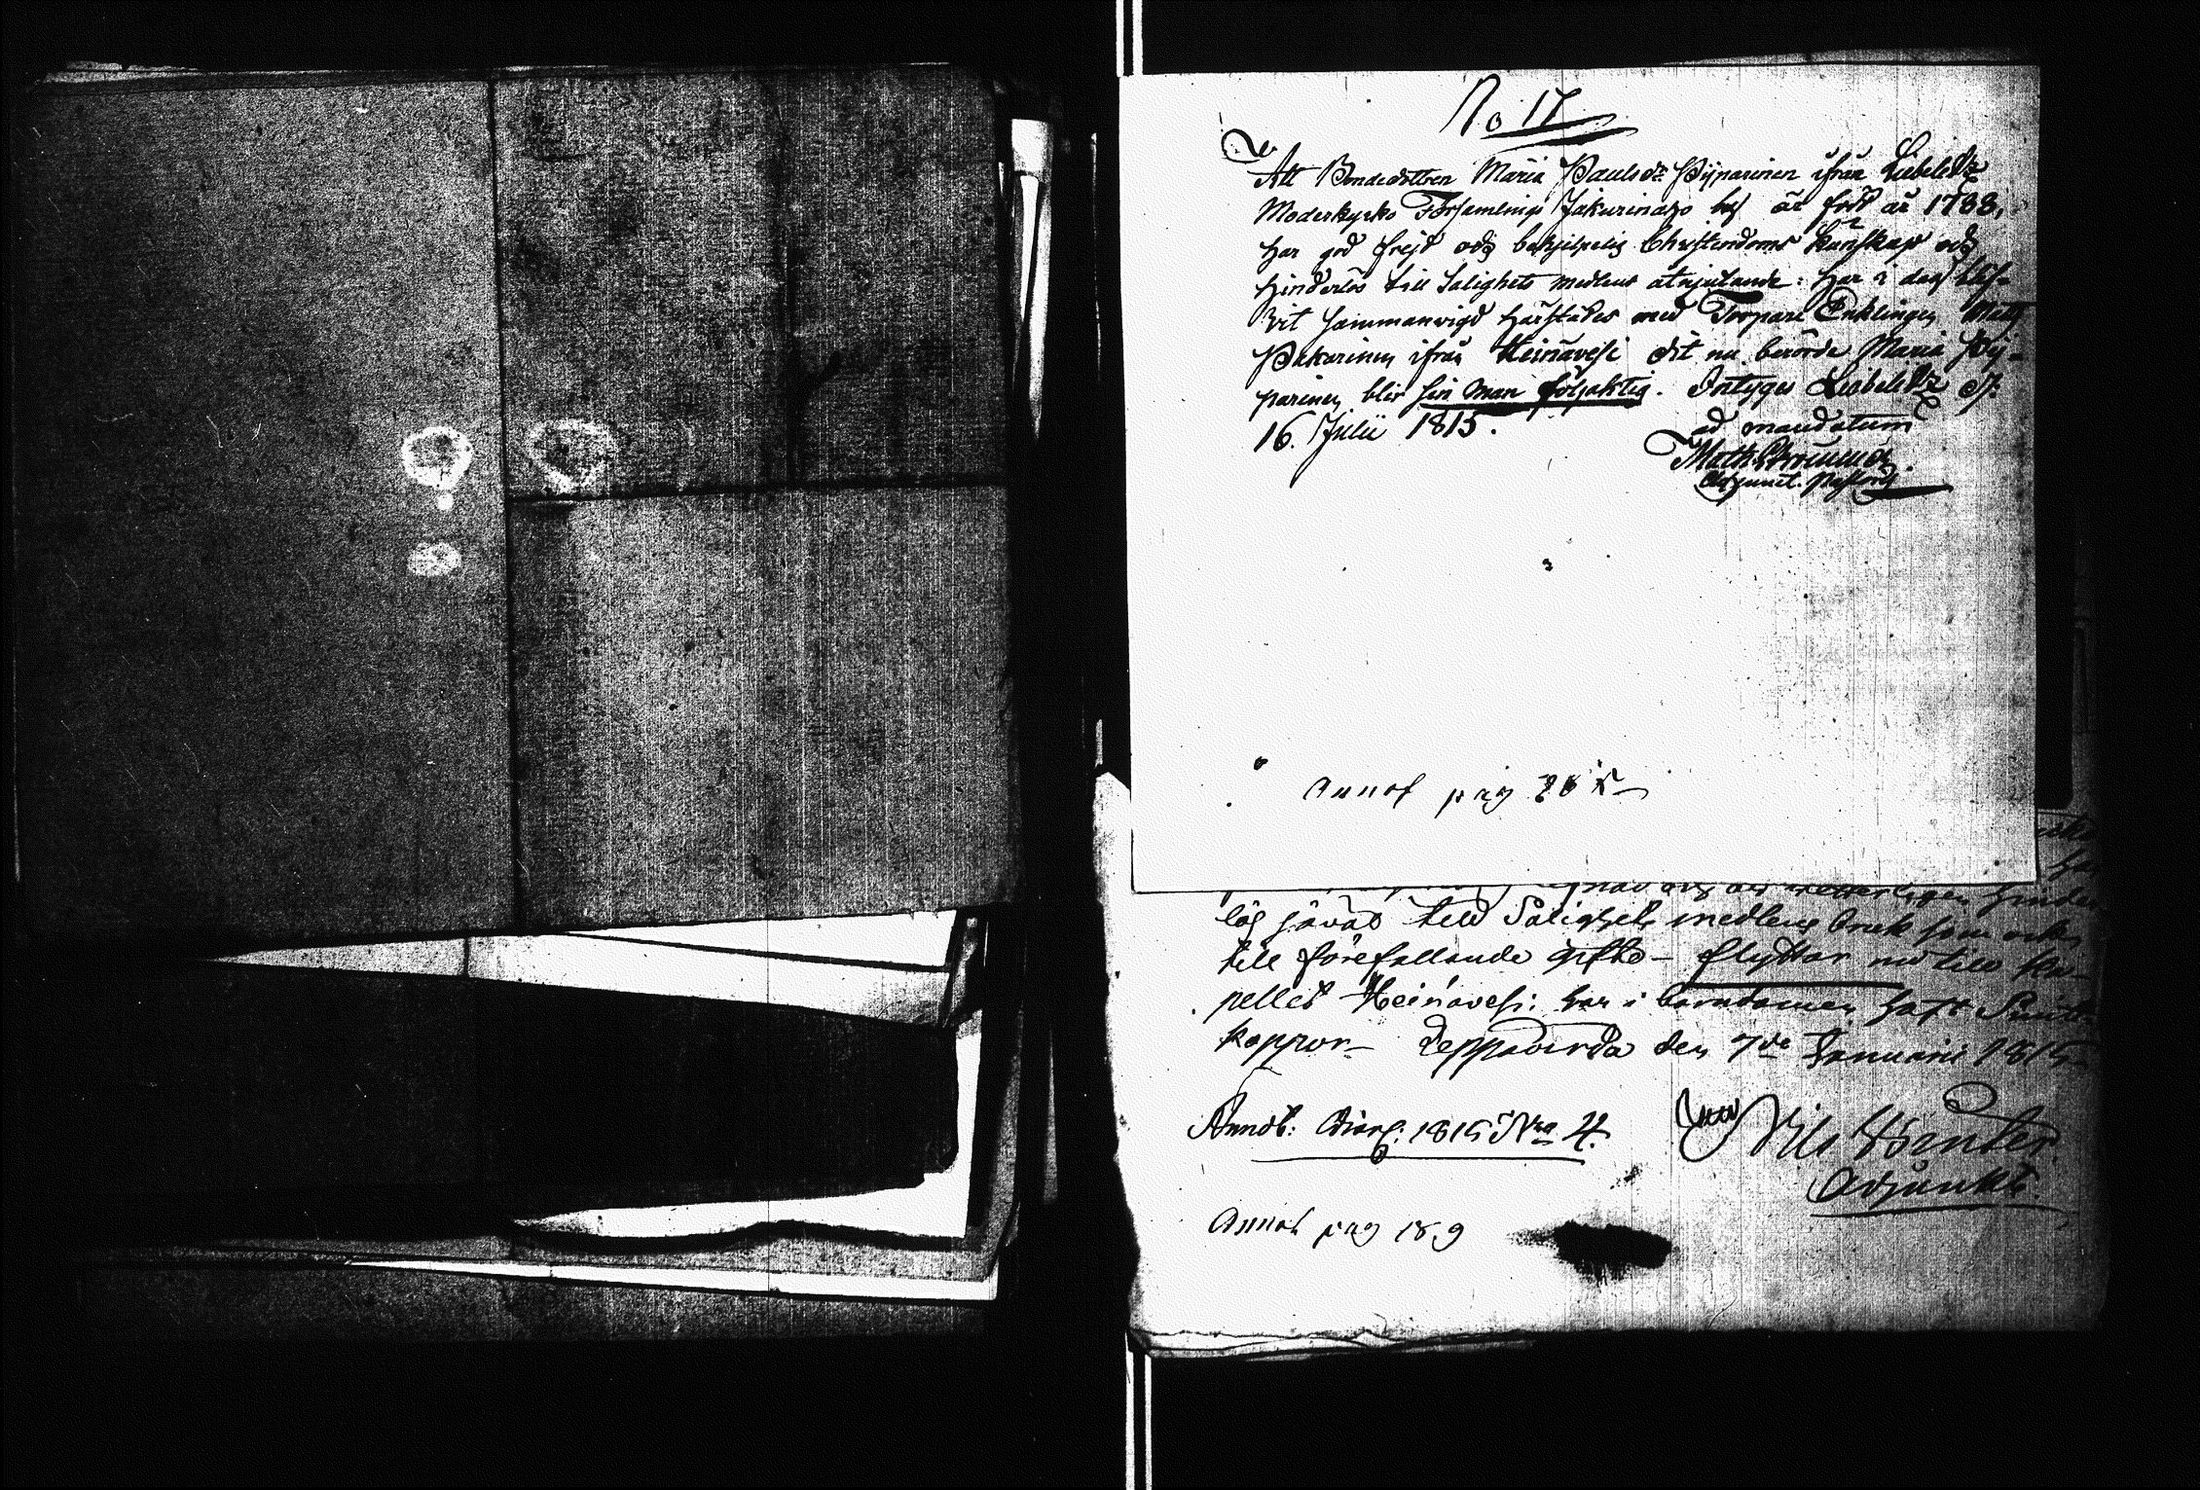 No 17
Att Bondedottren Maria Paulsdr Pyparinen ifrån Liebelitz
Moderkyrko Församlings Jakurinargo by är född år 1788,
har god frejd och behjelpelig Christendoms kunskap och
hinderlös till Salighets medlens åtnjutande: har i dag blif-
vit sammanvigd härstädes med Torparen Enklingen Matts
Pakarinen ifrån Heinävesi dit nu berörde Maria Py-
parinen blir sin man följaktig. Intygar Liebelitz d.
16. Julii 1815.
ad mandatum
Math.
Adjunct. Past
Annot pag
lös jävad till Salighets medlens bruk som och
till förefallande gifte - flyttar nu till Ka-
pellet Heinävesi: har i barndomen haft Smitt
koppor - Leppävirda den 7de Januarii 1815
Annot: Diari: 1815 Nro 4.
Nils
Adjunkt.
Annot pag 189